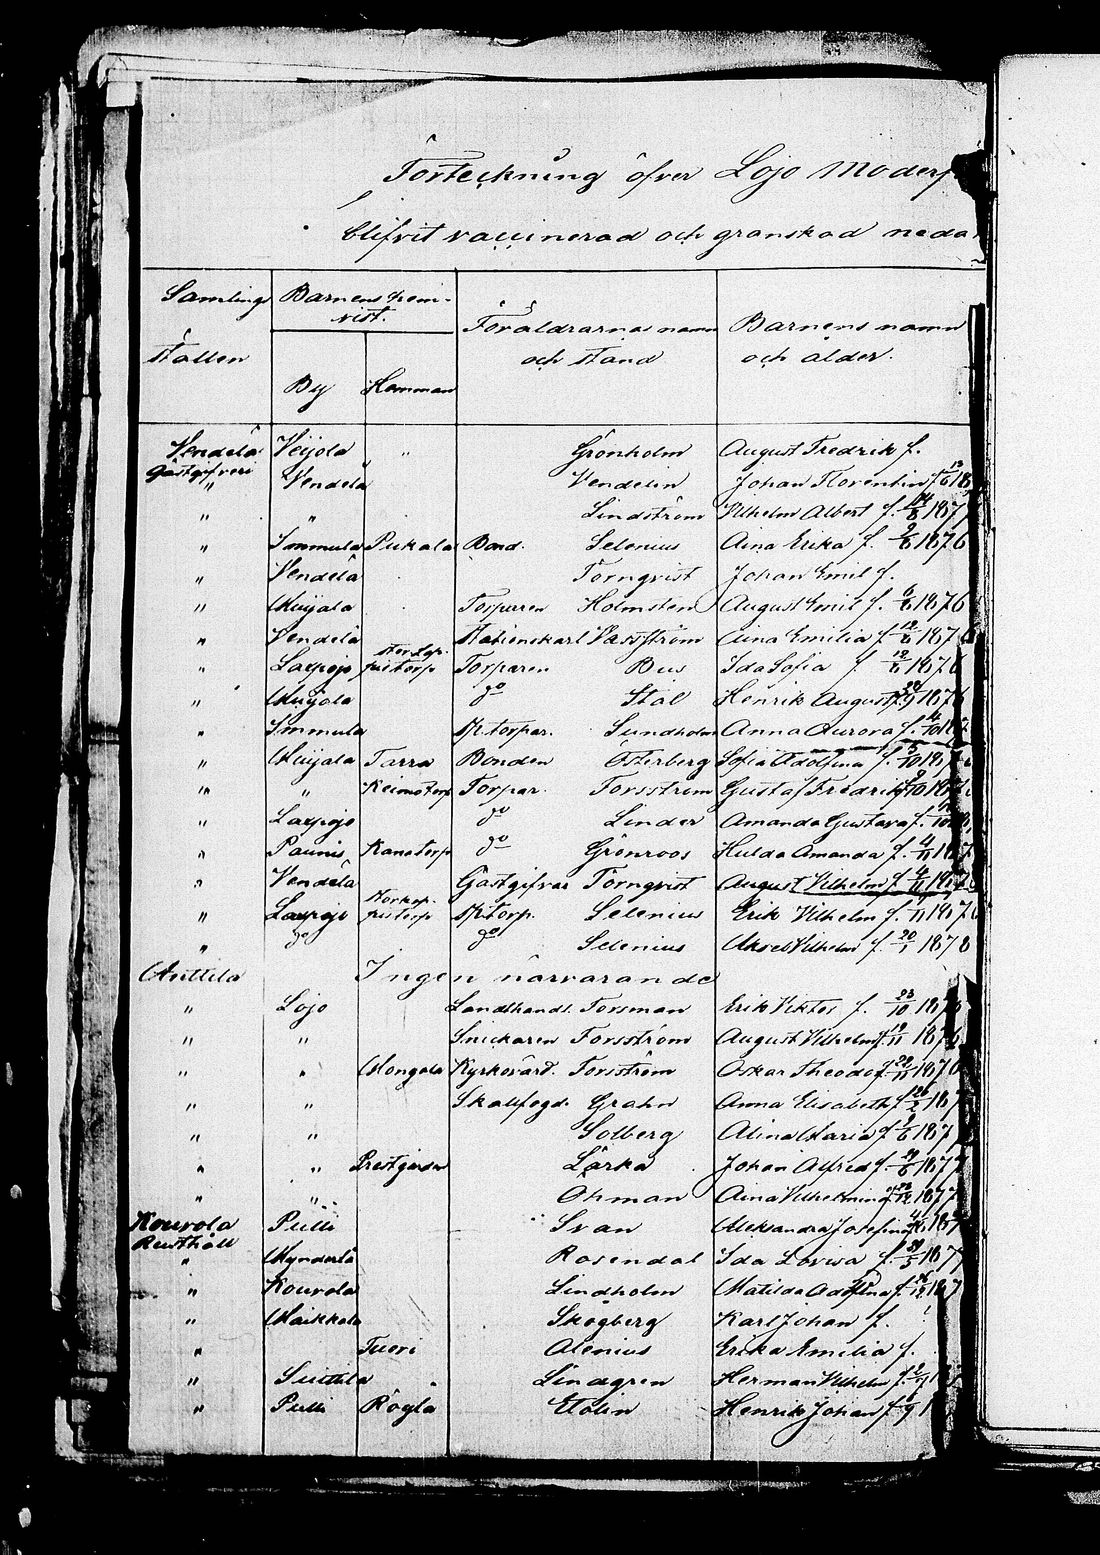 Förteckning öfver Lojo Moderf
blifvit vaccinerad och granskad neda
Samlings ställen
Barnens hemvist.
By Hemman
Föräldrarna namn och stånd
Barnens namn och ålder.
Vendelä Veijola " Grönholm August Fredrik f.
Gästgifveri " Vendelä Vendelin Johan Florentin f. 13/6 18
" " Lindström Vilhelm Albert f. 14/8 187
" Immula Pukala Bond. Selenius Aina Erika f. 9/8 1876
" Vendelä Törnqvist Johan Emil f.
" Muijala Torparen Holmsten August Emil f. 6/8 1876
" Vendelä Stationskarl Vassström Aina Emilia f. 12/8 187
" Laxpojo Torparen Bus Ida Sofia f. 12/8 1876
" Muijala do Stål Henrik August f. 1876
" Immula Sp. torpar. Sundholm Anna Aurora f. 4/10 187
" Muijala Tarra Bonden Österberg Sofia Adolfina f. 5/10 187
" " Keimotorp Torpar. Forsström Gustaf Fredrik f.
" Laxpojo do Linder Amanda Gustava f.
" Paunis Kanatorp do Grönroos Hulda Amanda f. 4/11 187
" Vendelä Gästgifvar Törnqvist August Vilhelm f. 4/11 187
" Laxpojo Sp. torp. Selenius Erik Vilhelm f. 1876
" do do Selenius Aksel Vilhelm f. 20/1 1878
Anttila Ingen närvarande
" Lojo Landthandl. Forsman Erik Viktor f. 23/10 1876
" " Snickaren Forsström August Vilhelm f. 19/11 1876
" " Mongola Kyrkovärd. Forsström Oskar Theodor f. 1876
" " Skallfogd. Grahn Anna Elisabeth f. 187
" " Solberg Alina Maria f. 187
" " Prestgården Lärka Johan Alfred f. 29/6 1877
" " Öhman Aina Vilhelmina f. 1877
Kouvola Pulli Svan Aleksandra Josefina f. 187
Rusthåll " Mynderlä Rosendal Ida Lovisa f. 31/5 1877
" Kouvola Lindholm Matilda Adolfina f. 187
" Maikkala Skogberg Karl Johan f.
" Tuori Alenius Erika Emilia f.
" Suittila Lindgren Herman Vilhelm f.
" Pulli Rögla Elolin Henrik Johan f.